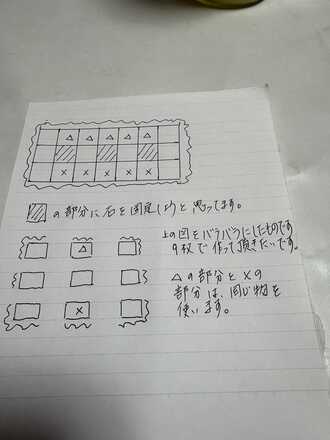 △ △ △ △ △
× × × × ×
の部分に石を固定しようと思ってます。
上の図をバラバラにしたものです
9枚で作って頂きたいです。
△
△の部分と×の
部分は、同じ物を
使います。
×